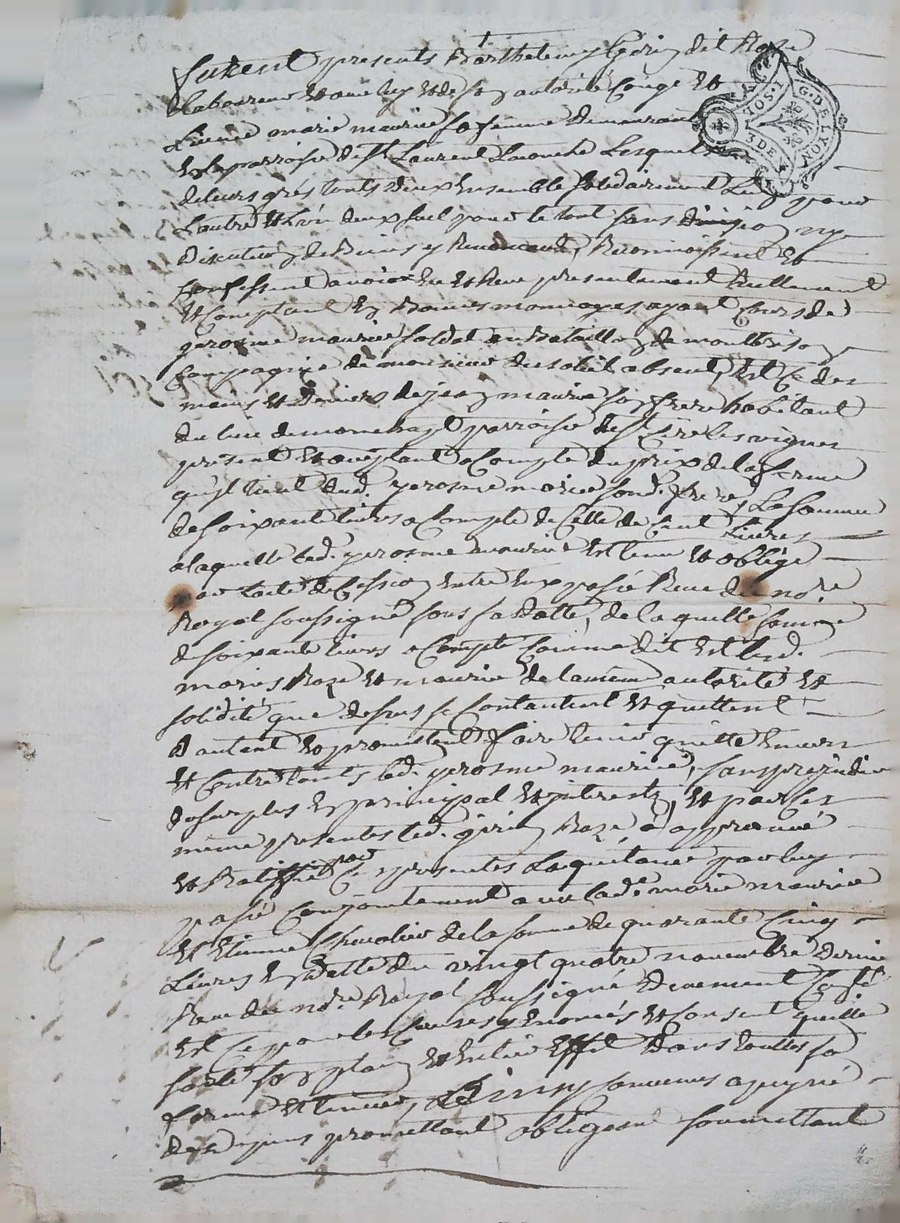 furent presents Barthelemy Gerin dit Roze
laboureur et avec luy et de son autorité Congé et
Licence marie maurice sa femme
de la parroise de St Laurent Laconche Lesquels
de leurs gres touts deux Ensemble solidairement L'un pour
L'autre et L'un deux seul pour le tout sans division ny
discution de Biens y Renonceant, Reconnoissent et
confessent avoir Eu et Reçu presentement Reellement
et Comptant En Bonnes monnoyes ayant Cours de
gerosme maurice soldat au Bataillon de montbrison
Compagnie de monsieur absent, Et Ce des
mains et Deniers de jean maurice son frere habitant
du lieu de parroise de St Cire les vignes
présent et acceptant a Compte du prix de la ferme
qu'il tient dud. gerosme morice sond. frere, La somme
de soixante livres a Compte de Celle de Cent Livres
a laquelle led. gerosme maurice Est tenu et obligé
par l'acte de Cession Entre Eux passé Reçu du nore
Royal soussigné sous sa datte, de laquelle somme
de soixante livres a Compte Comme dit Est lesd.
mariés Roze et maurice de la meme autorité et
solidité que dessus se Contantent et quittent
d'autant et promettent faire tenir quitte Envers
et Contre touts led. gerosme maurice, sans prejudice
du surplus En principal et interests, et par les
même presentes led. gerin Roze a approuvé
et Ratiffié par Ces presentes La quitance par luy
passé Conjointement avec lad. marie maurice
et Etienne Chevalier de la somme de quarante Cinq
Livres En datte du vingt quatre novembre dernier
Reçu du nore Royal soussigné Duement
Et Ce pour les Causes y Enoncés et Consent quelle
sorte son plain et Entier Effet Dans touttes sa
forme et teneur, Ainsy Convenus a peyne
de promettant obligeant soumettant
G. DE LION